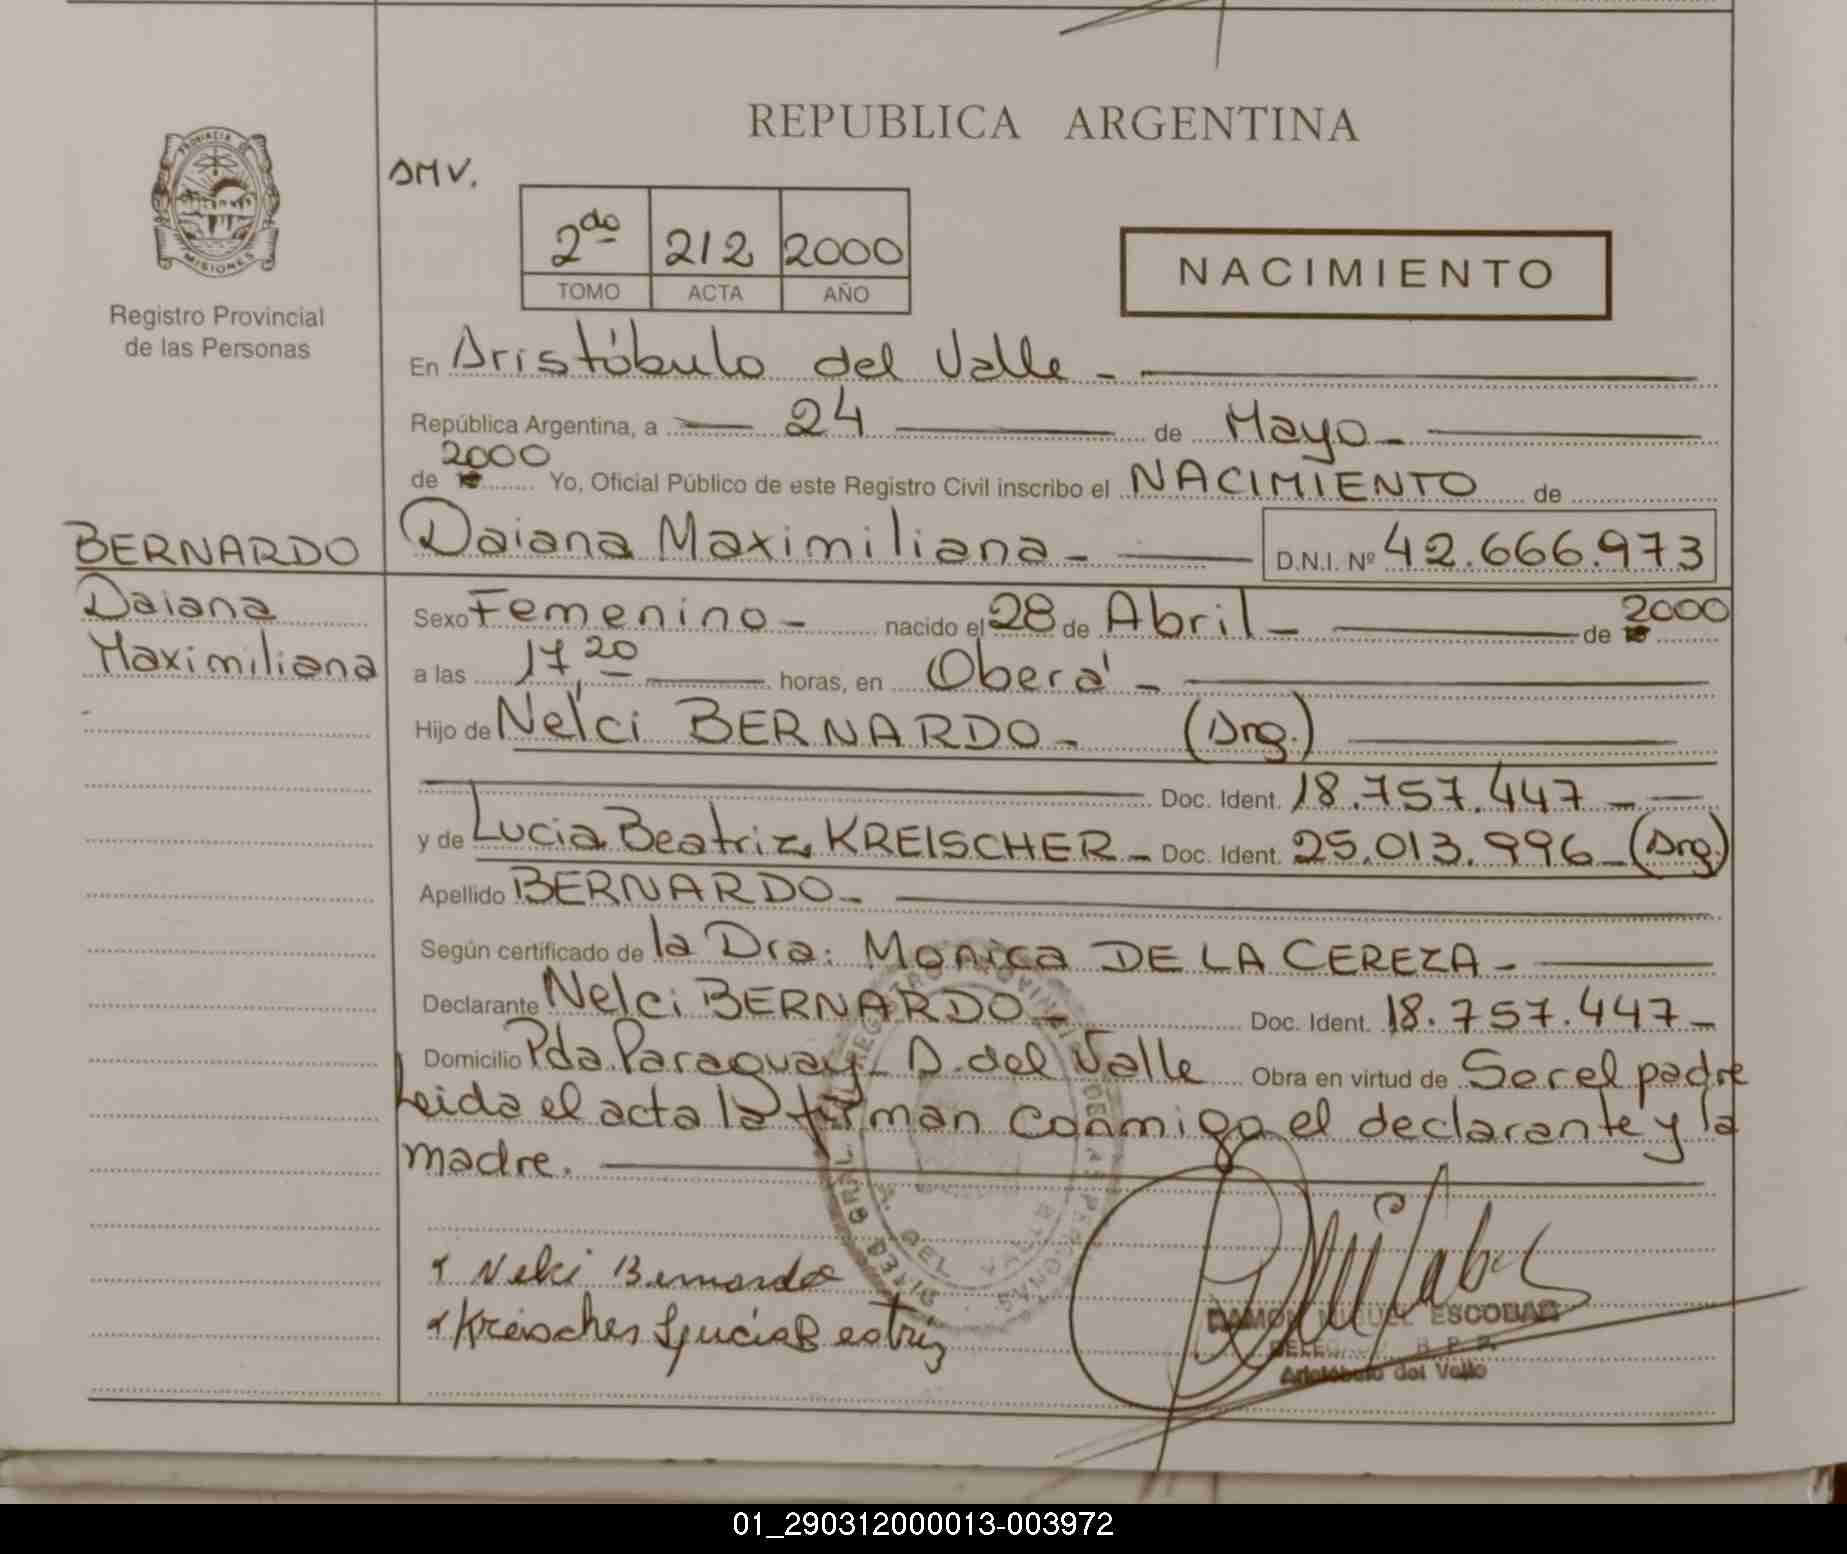 REPUBLICA ARGENTINA
PROVINCIA DE
MISIONES
Registro Provincial
de las Personas
AMV.
2do 212 2000
TOMO ACTA AÑO
NACIMIENTO
En Aristóbulo del Valle -
República Argentina, a 24 de Mayo -
2000
de Yo, Oficial Público de este Registro Civil inscribo el NACIMIENTO de
BERNARDO Daiana Maximiliana - D.N.I. Nº 42.666.973
Daiana
Maximiliana
Sexo Femenino - nacido el 28 de Abril - de 2000
a las 17,20 horas, en Oberá -
Hijo de Nelci BERNARDO - (Arg.)
Doc. Ident. 18.757.447 -
y de Lucia Beatriz KREISCHER - Doc. Ident. 25.013.996 - (Arg.)
Apellido BERNARDO -
Según certificado de la Dra: Monica DE LA CEREZA -
Declarante Nelci BERNARDO - Doc. Ident. 18.757.447 -
Domicilio Pda. Paraguay - A. del Valle Obra en virtud de Ser el padre
Leida el acta la firman conmigo el declarante y la
madre.
Nelci Bernardo
Kreischer Lucia Beatriz
RAMON MIGUEL ESCOBAR
R. P. P.
Aristóbulo del Valle
01_290312000013-003972